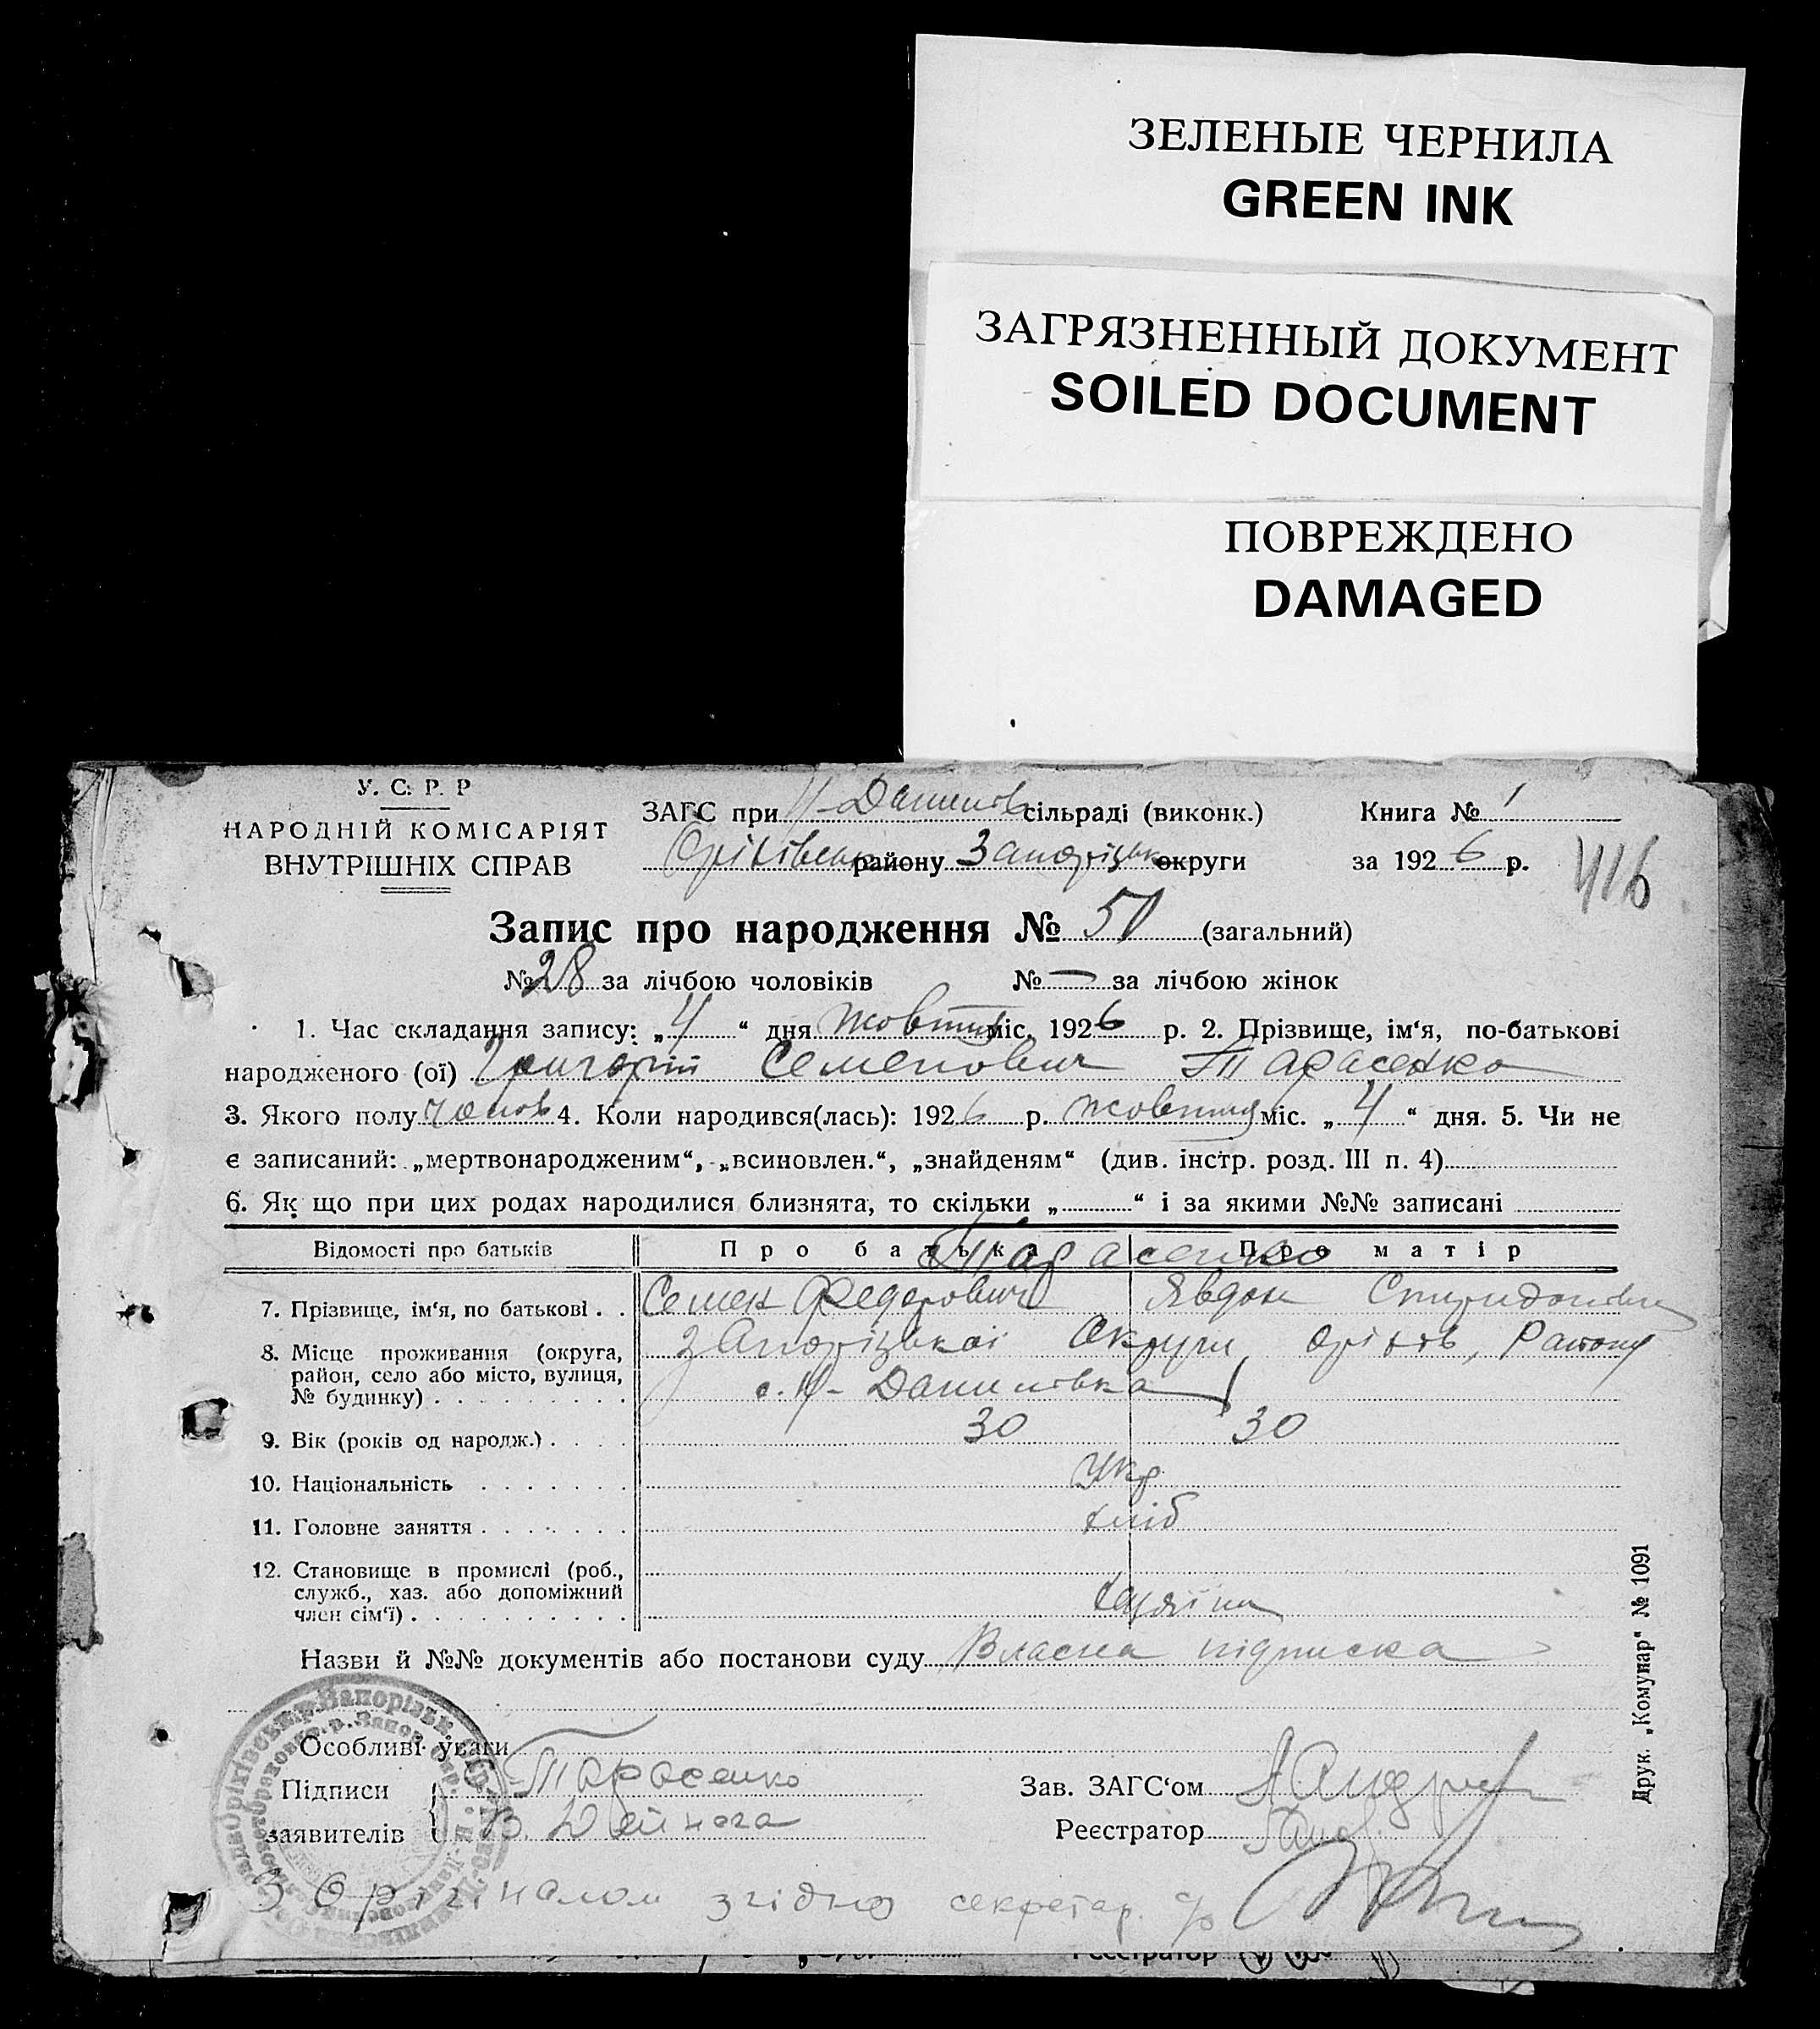 ЗЕЛЕНЫЕ ЧЕРНИЛА
GREEN INK
ЗАГРЯЗНЕННЫЙ ДОКУМЕНТ
SOILED DOCUMENT
ПОВРЕЖДЕНО
DAMAGED
У. С. Р. Р
НАРОДНІЙ КОМІСАРІЯТ
ВНУТРІШНІХ СПРАВ
ЗАГС при Н-Данилів сільраді (виконк.)
Оріхівськ району Запорізьк округи
Книга № 1
за 1926 р.
416
Запис про народження № 50 (загальний)
№ 28 за лічбою чоловіків № — за лічбою жінок
1. Час складання запису: „4“ дня жовтня міс. 1926 р. 2. Прізвище, ім‘я, по-батькові
народженого (ої) Григорій Семенович Тарасенко
3. Якого полу чолов 4. Коли народився(лась): 1926 р. жовтня міс. „4“ дня. 5. Чи не
є записаний: „мертвонародженим“, „всиновлен.“, „знайденям“ (див. інстр. розд. III п. 4)
6. Як що при цих родах народилися близнята, то скільки „ “ і за якими №№ записані
Відомості про батьків Про батька Про матір
Тарасенко
7. Прізвище, ім‘я, по батькові . . Семен Федорович Явдоха Спиридонівна
8. Місце проживання (округа, район, село або місто, вулиця, № будинку) Запорізької Округи, Оріхів, Району
с. Н-Данилівка
9. Вік (років од народж.) 30 30
10. Національність Укр
11. Головне заняття хліб
12. Становище в промислі (роб., служб., хаз. або допоміжний член сім‘ї) Хазяїни
Назви й №№ документів або постанови суду Власна підписка
Особливі уваги
Підписи заявителів Тарасенко
В. Дейнега
Зав. ЗАГС‘ом
Реєстратор
З Оріґіналом згідно секретар с/р
Друк. „Комунар“ № 1091
Реєстратор